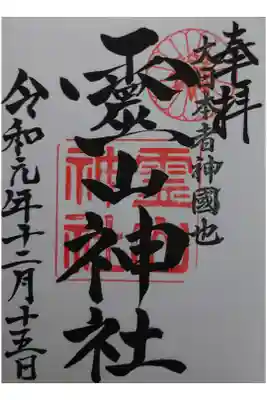 奉拝
大日本者神國也
靈山神社
霊山神社
令和元年十二月十五日